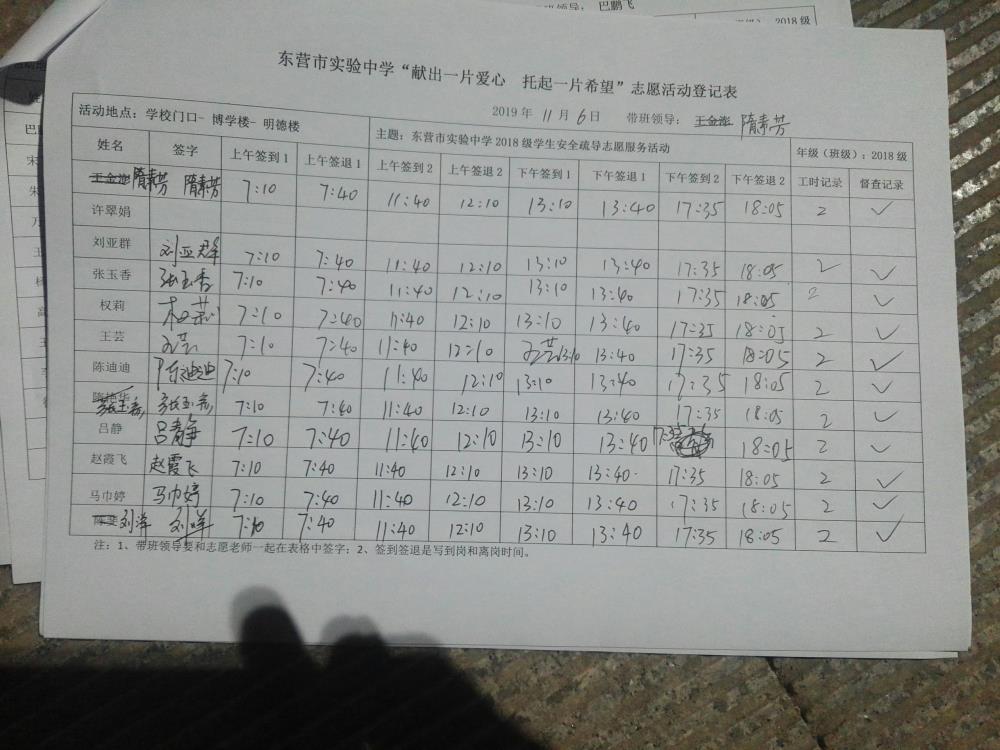 班领导： 巴鹏飞
2018 级
东营市实验中学“献出一片爱心 托起一片希望”志愿活动登记表
2019 年 11 月 6 日 带班领导： 隋素芳
活动地点：学校门口- 博学楼- 明德楼 主题：东营市实验中学 2018 级学生安全疏导志愿服务活动 年级（班级）：2018 级
姓名 签字 上午签到 1 上午签退 1 上午签到 2 上午签退 2 下午签到 1 下午签退 1 下午签到 2 下午签退 2 工时记录 督查记录
隋素芳 隋素芳 7:10 7:40 11:40 12:10 13:10 13:40 17:35 18:05 2 ✓
许翠娟
刘亚群 刘亚群 7:10 7:40 11:40 12:10 13:10 13:40 17:35 18:05 2 ✓
张玉香 张玉香 7:10 7:40 11:40 12:10 13:10 13:40 17:35 18:05 2 ✓
权莉 权莉 7:10 7:40 11:40 12:10 13:10 13:40 17:35 18:05 2 ✓
王芸 王芸 7:10 7:40 11:40 12:10 王芸 13:10 13:40 17:35 18:05 2 ✓
陈迪迪 陈迪迪 7:10 7:40 11:40 12:10 13:10 13:40 17:35 18:05 2 ✓
7:10 7:40 11:40 12:10 13:10 13:40 17:35 18:05 2 ✓
吕静 吕静 7:10 7:40 11:40 12:10 13:10 13:40 17:35 18:05 2 ✓
赵霞飞 赵霞飞 7:10 7:40 11:40 12:10 13:10 13:40 17:35 18:05 2 ✓
马巾婷 马巾婷 7:10 7:40 11:40 12:10 13:10 13:40 17:35 18:05 2 ✓
刘洋 刘洋 7:10 7:40 11:40 12:10 13:10 13:40 17:35 18:05 2 ✓
注：1、带班领导要和志愿老师一起在表格中签字；2、签到签退是写到岗和离岗时间。